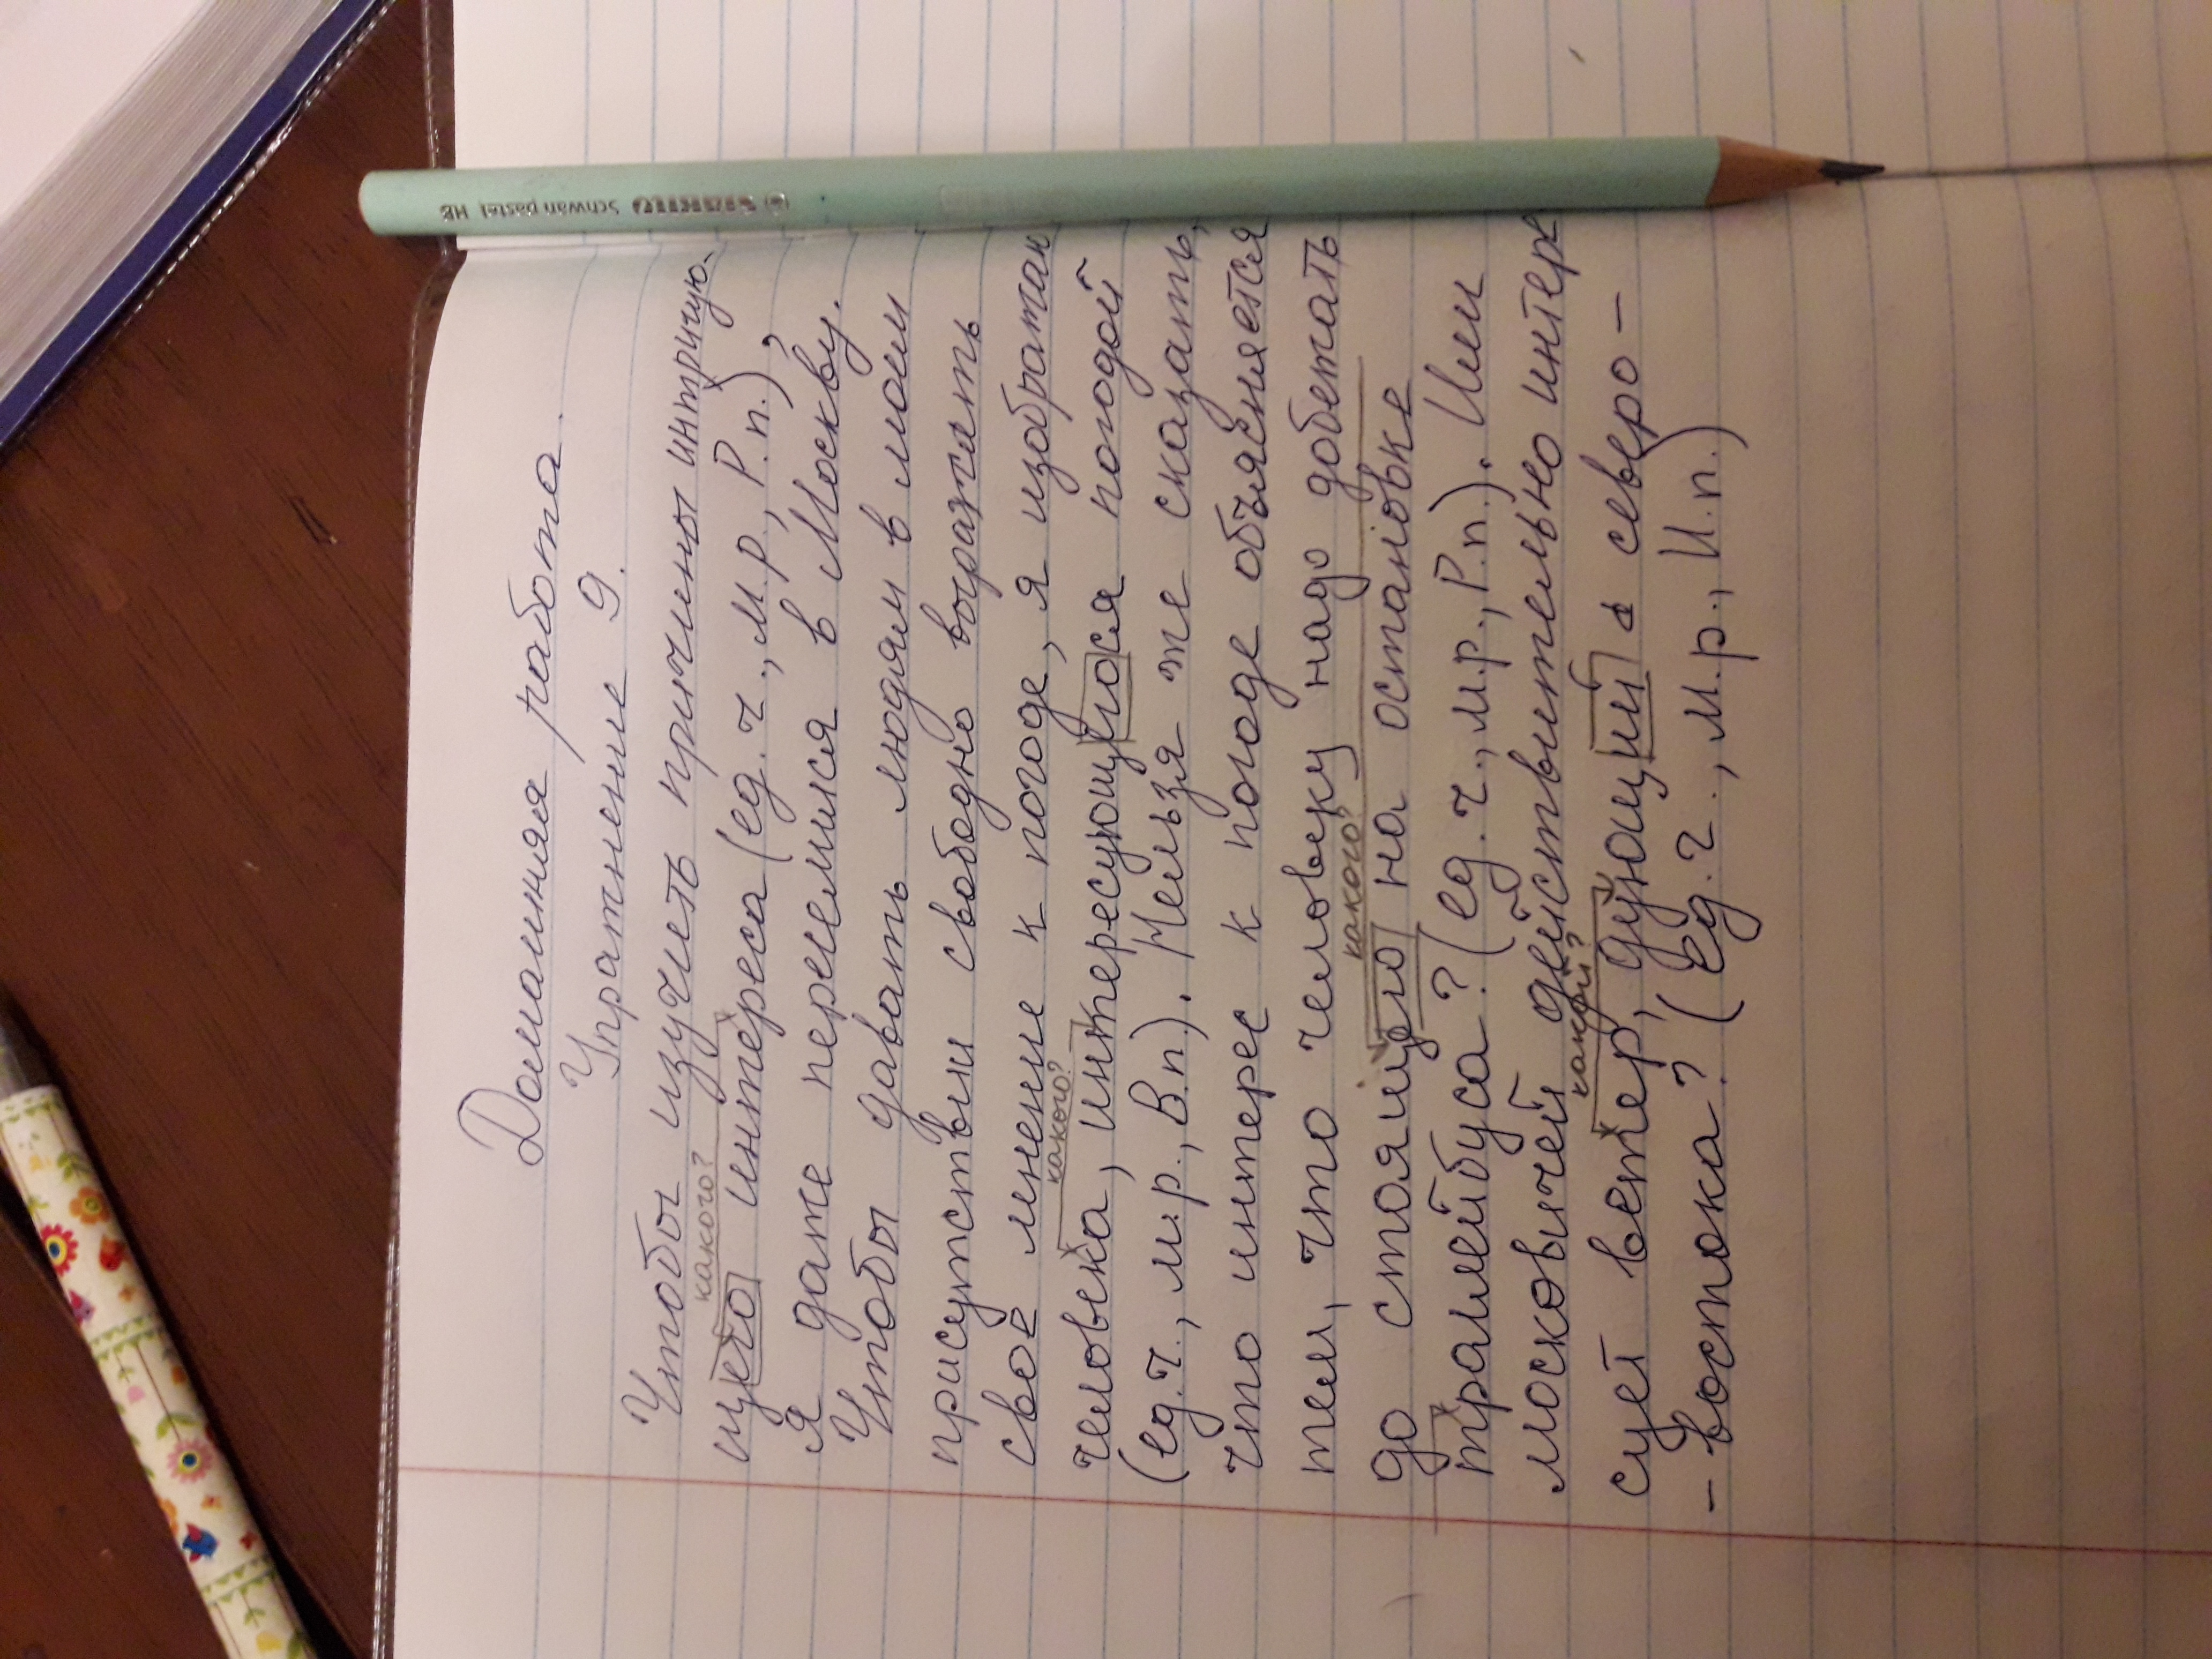 Домашняя работа.
Упражнение 9.
Чтобы изучить причины интригую-
какого?
щего интереса (ед.ч., м.р., Р.п.),
я даже переселился в Москву.
Чтобы давать людям в моём
присутствии свободно выражать
своё мнение к погоде, я изобрати
какого?
человека, интересующегося погодой
(ед.ч., м.р., В.п). Нельзя же сказать,
что интерес к погоде объясняется
тем, что человеку надо добежать
какого?
до стоящего на остановке
трамлейбуса? (ед.ч., м.р., Р.п). Или
москвичей действительно интере
какой?
сует ветер, дующий с северо-
-востока? (ед.ч., м.р., И.п.)
STABILO Schwan pastel HB